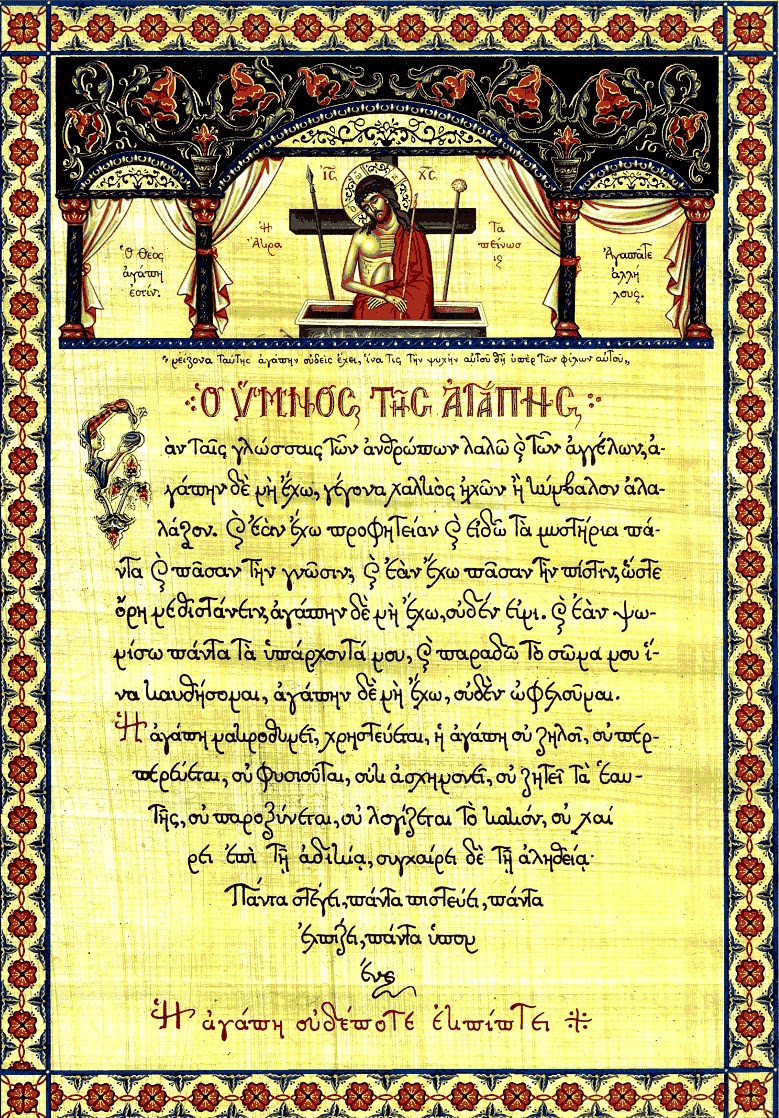 ΙC ΧC
Ὁ Θεὸς
ἀγάπη
ἐστίν.
Ἡ
Ἄκρα
Τα
πείνωσ
ις
Ἀγαπᾶτε
ἀλλή
λους.
"μείζονα ταύτης ἀγάπην οὐδεὶς ἔχει, ἵνα τις τὴν ψυχὴν αὐτοῦ θῇ ὑπὲρ τῶν φίλων αὐτοῦ"
Ὁ ὝΜΝΟC ΤΗC ἈΓΆΠΗC
Ἐὰν ταῖς γλώσσαις τῶν ἀνθρώπων λαλῶ ϗ̀ τῶν ἀγγέλων, ἀ-
γάπην δὲ μὴ ἔχω, γέγονα χαλκὸς ἠχῶν ἢ κύμβαλον ἀλα-
λάζον. ϗ̀ ἐὰν ἔχω προφητείαν ϗ̀ εἰδῶ τὰ μυστήρια πά-
ντα ϗ̀ πᾶσαν τὴν γνῶσιν, ϗ̀ ἐὰν ἔχω πᾶσαν τὴν πίστιν, ὥστε
ὄρη μεθιστάνειν, ἀγάπην δὲ μὴ ἔχω, οὐδέν εἰμι. ϗ̀ ἐὰν ψω-
μίσω πάντα τὰ ὑπάρχοντά μου, ϗ̀ παραδῶ τὸ σῶμα μου ἵ-
να καυθήσομαι, ἀγάπην δὲ μὴ ἔχω, οὐδὲν ὠφελοῦμαι.
Ἡ ἀγάπη μακροθυμεῖ, χρηστεύεται, ἡ ἀγάπη οὐ ζηλοῖ, οὐ περ-
περεύεται, οὐ φυσιοῦται, οὐκ ἀσχημονεῖ, οὐ ζητεῖ τὰ ἑαυ-
τῆς, οὐ παροξύνεται, οὐ λογίζεται τὸ κακόν, οὐ χαί
ρει ἐπὶ τῇ ἀδικίᾳ, συγχαίρει δὲ τῇ ἀληθείᾳ·
Πάντα στέγει, πάντα πιστεύει, πάντα
ἐλπίζει, πάντα ὑπομ
ένει
Ἡ ἀγάπη οὐδέποτε ἐκπίπτει